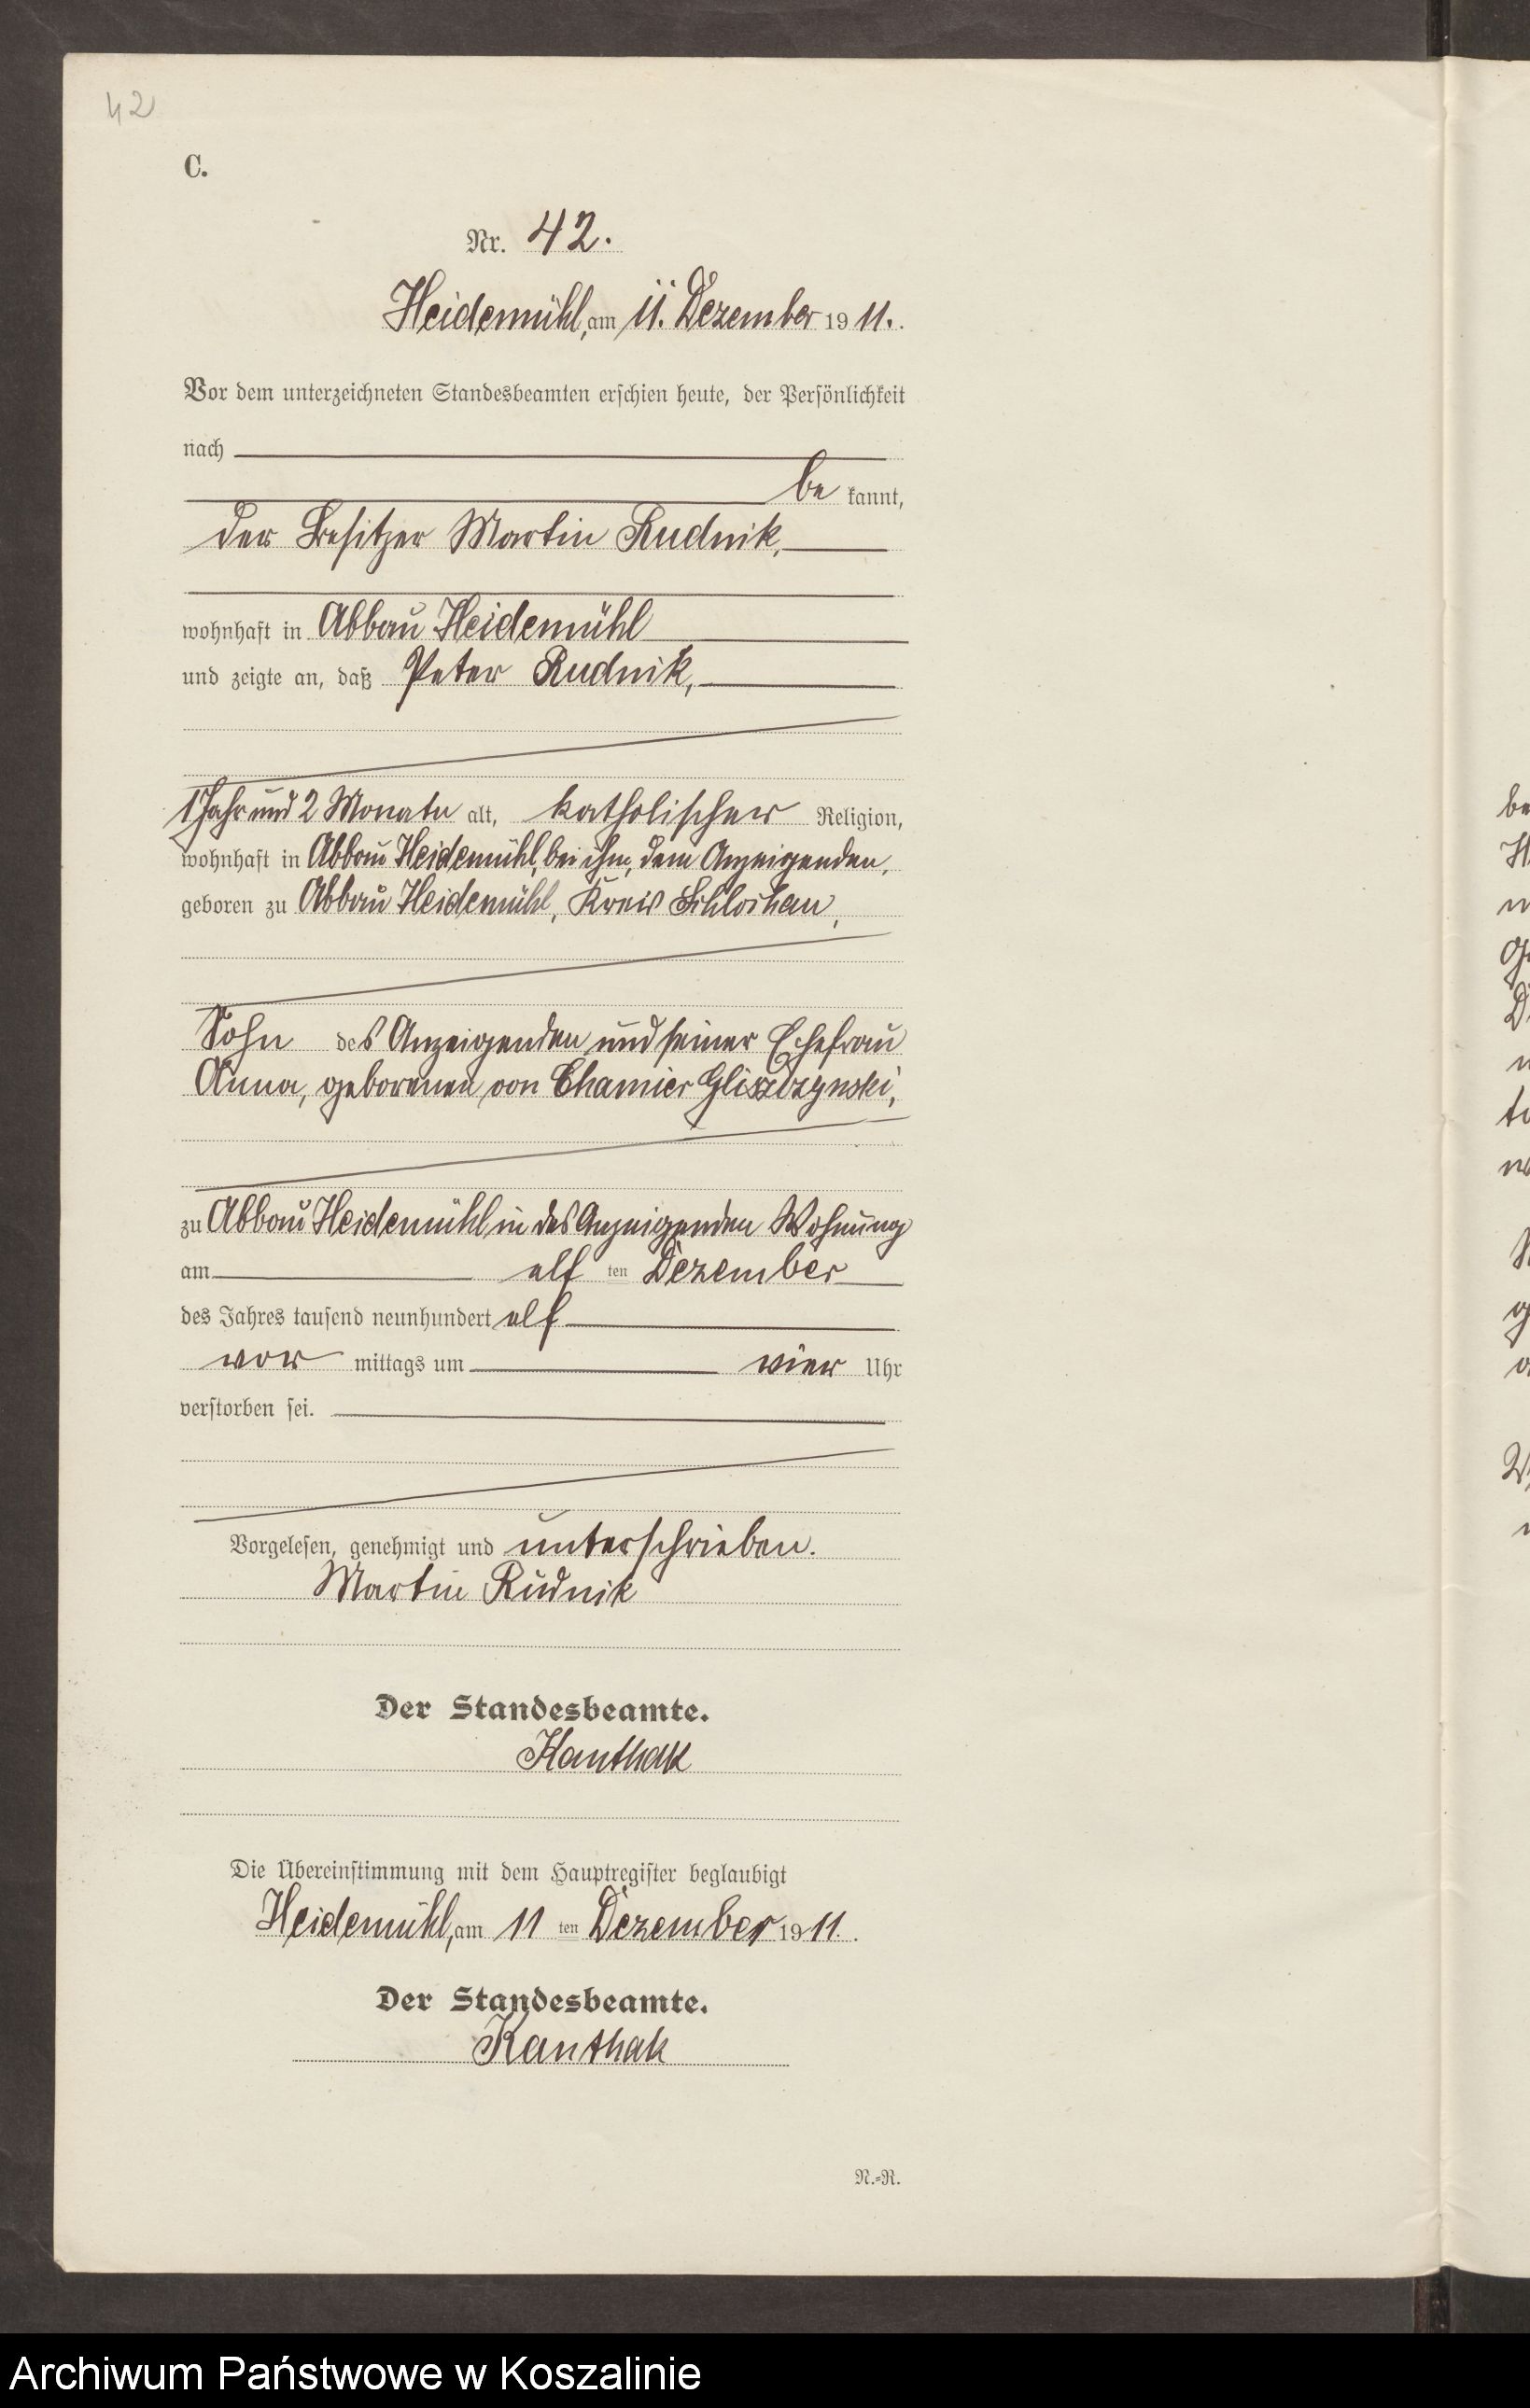 42
C.
Nr. 42.
Heidemühl, am 11. Dezember 1911.
Vor dem unterzeichneten Standesbeamten erschien heute, der Persönlichkeit
nach
be kannt,
der Besitzer Martin Rudnik,
wohnhaft in Abbau Heidemühl
und zeigte an, daß Peter Rudnik,
1 Jahr und 2 Monate alt, katholischer Religion,
wohnhaft in Abbau Heidemühl, bei ihm, dem Anzeigenden,
geboren zu Abbau Heidemühl, Kreis Schlochau,
Sohn des Anzeigenden und seiner Ehefrau
Anna, geborenen von Chamier Gliszczynski,
zu Abbau Heidemühl in des Anzeigenden Wohnung
am elf ten Dezember
des Jahres tausend neunhundert elf
vor mittags um vier Uhr
verstorben sei.
Vorgelesen, genehmigt und unterschrieben.
Martin Rudnik
Der Standesbeamte.
Kanthak
Die Übereinstimmung mit dem Hauptregister beglaubigt
Heidemühl, am 11 ten Dezember 1911.
Der Standesbeamte.
Kanthak
N.=R.
Archiwum Państwowe w Koszalinie